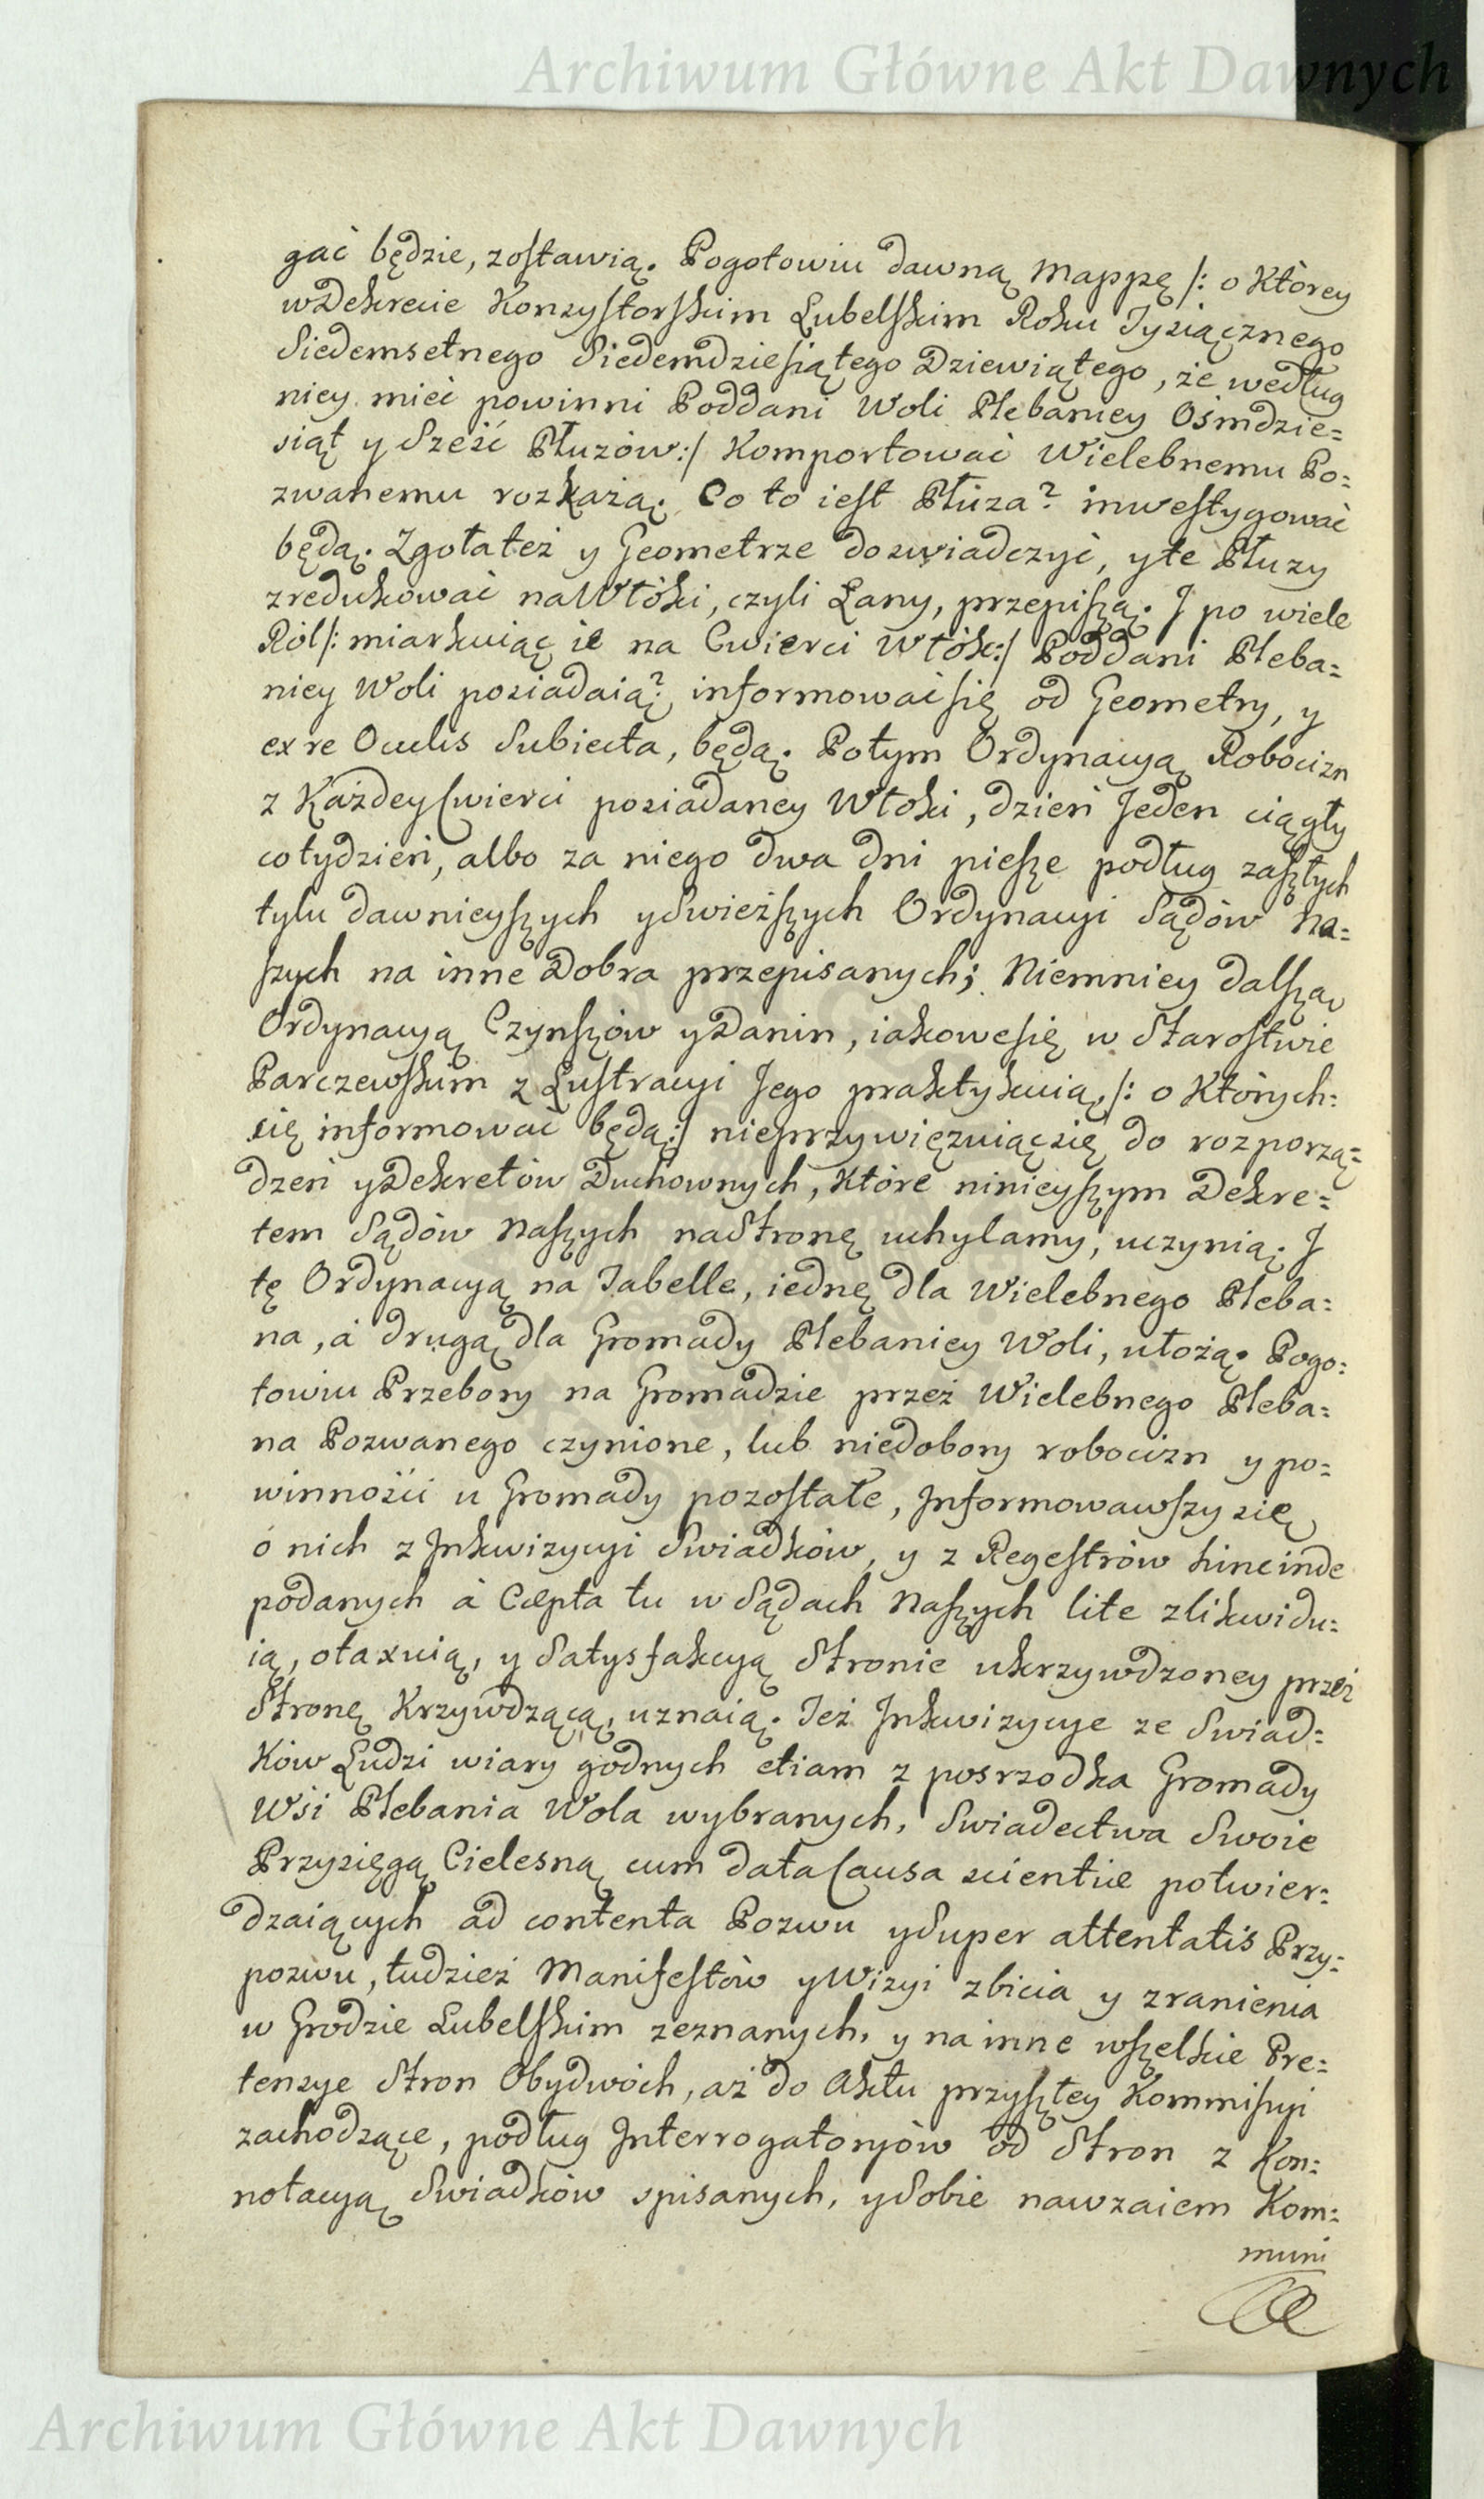 Archiwum Główne Akt Dawnych
gać będzie, zostawią. Pogotowiu dawną Mappę /: o Którey
w Dekrecie Konzystorskim Lubelskim Roku Tysiącznego
Siedemsetnego Siedemdziesiątego Dziewiątego, że według
niey mieć powinni Poddani Woli Plebaniey Ośmdzie=
siąt y Sześć Płuzów :/ Komportować Wielebnemu Po=
zwanemu rozkażą. Co to iest Płuza? inwestygować
będą. Zgoła też y Geometrze doświadczyć, y te Płuzy
zredukować na Włóki, czyli Łany, przepiszą. I po wiele
Ról /: miarkuiąc ie na Cwierci Włók :/ Poddani Pleba=
niey Woli posiadaią? informować się od Geometry, y
ex re Oculis Subiecta, będą. Potym Ordynacyą Robocizn
z Każdey Cwierci posiadaney Włoki, dzień Jeden ciągły
co tydzień, albo za niego dwa dni piesze podług zaszłych
tylu dawnieyszych y Swieższych Ordynacyi Sądów Na=
szych na inne Dobra przepisanych; Niemniey dalszą
Ordynacyą Czynszów y Danin, iakowe się w Starostwie
Parczewskim z Lustracyi Jego praktykuią, /: o Których=
się informować będą :/ nieprzywięzuiąc się do rozporzą=
dzeń y Dekretów Duchownych, Które ninieyszym Dekre=
tem Sądów Naszych na Stronę uchylamy, uczynią. I
tę Ordynacyą na Tabelle, iednę dla Wielebnego Pleba=
na, á drugą dla Gromady Plebaniey Woli, ułożą. Pogo=
towiu Przebory na Gromadzie przez Wielebnego Pleba=
na Pozwanego czynione, lub niedobory robocizn y po=
winności u Gromady pozostałe, Informowawszy się
ó nich z Inkwizycyi Swiadków, y z Regestrów hinc inde
podanych á Cæpta tu w Sądach Naszych lite zlikwidu=
ią, otaxuią, y Satysfakcyą Stronie ukrzywdzoney przez
Stronę Krzywdzącą, uznaią. Też Inkwizycye ze Swiad=
Ków Ludzi wiary godnych etiam z posrzodka Gromady
Wsi Plebania Wola wybranych, Swiadectwa Swoie
Przysięgą Cielesną cum data Causa scientiæ potwier=
dzaiących ad contenta Pozwu y Super attentatis Przy=
pozwu, tudzież Manifestów y Wizyi zbicia y zranienia
w Grodzie Lubelskim zeznanych, y na inne wszelkie Pre=
tensye Stron Obydwóch, aż do Aktu przyszłey Kommissyi
zachodzące, podług Interrogatoryów od Stron z Kon=
notacyą Swiadków spisanych, y Sobie nawzaiem Kom=
muni
Archiwum Główne Akt Dawnych